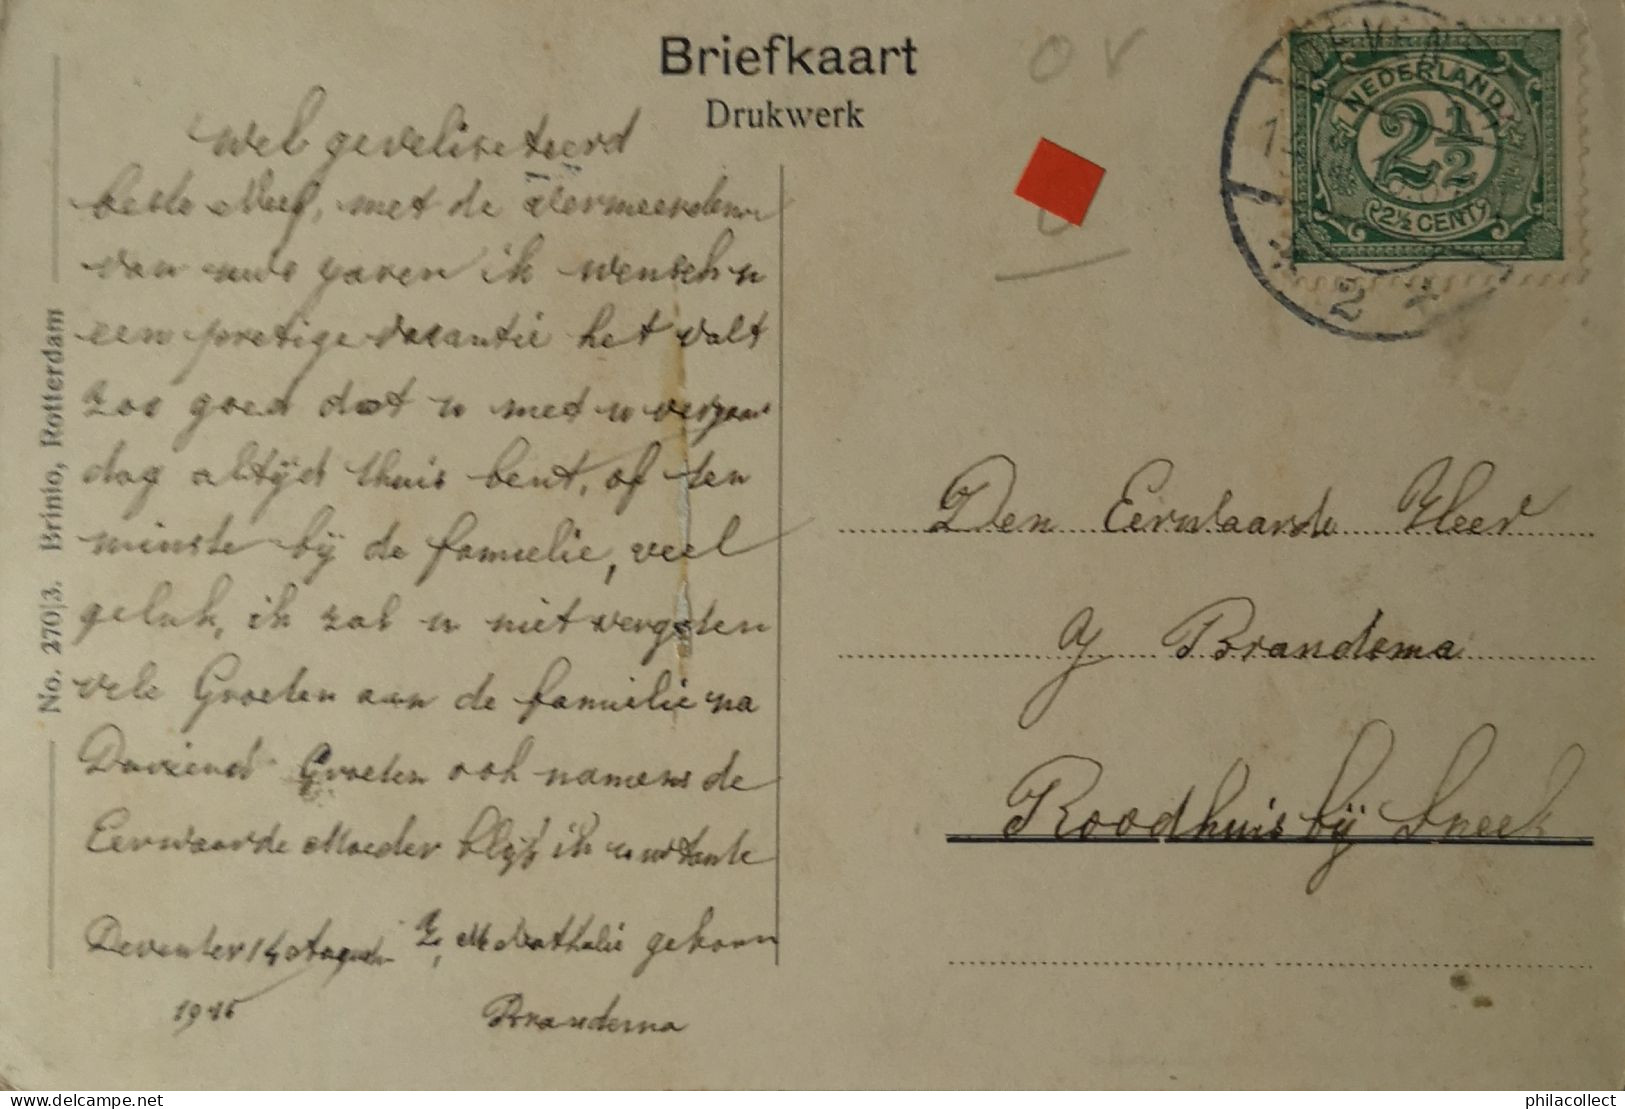 Briefkaart
Drukwerk
NEDERLAND
2 1/2
2½ CENT
2
O V
No. 270|3. Brinio, Rotterdam
wel geveliseteerd
beste Neef, met de vermeerderen
van uwe jaren ik wensch u
een pretige vacantie het valt
zoo goed dat u met u verjaar
dag altijd thuis bent, of ten
minste bij de famielie, veel
geluk, ik zal u niet vergeten
vele Groeten aan de familie na
Duizend Groeten ook namens de
Eerwaarde Moeder blijf ik u nwtante
Deventer 14 August
1915
Z, M Nathalie geboren
Brandsma
Den Eerwaarde Heer
J Brandsma
Roodhuis bij Sneek
philacollect